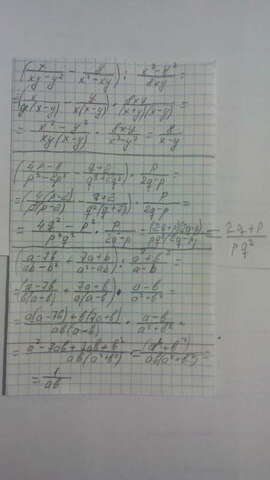 (x/(xy-y²) - y/(x²-xy)) : (x²-y²)/(8xy) =
= (x/(y(x-y)) - y/(x(x-y))) · 8xy/((x+y)(x-y)) =
= (x²-y²)/(xy(x-y)) · 8xy/(x²-y²) = 8/(x-y)
= (4q²-p²)/(p²q²) · p/(2q-p) = (2q+p)(2q-p)/(pq²(2q-p)) = (2q+p)/(pq²)
((a-7b)/(ab-b²) + (7a+b)/(a²-ab)) : (a²+b²)/(a-b) =
= ((a-7b)/(b(a-b)) + (7a+b)/(a(a-b))) · (a-b)/(a²+b²) =
= (a(a-7b)+b(7a+b))/(ab(a-b)) · (a-b)/(a²+b²) =
= (a²-7ab+7ab+b²)/(ab(a²+b²)) = (a²+b²)/(ab(a²+b²)) =
= 1/(ab)